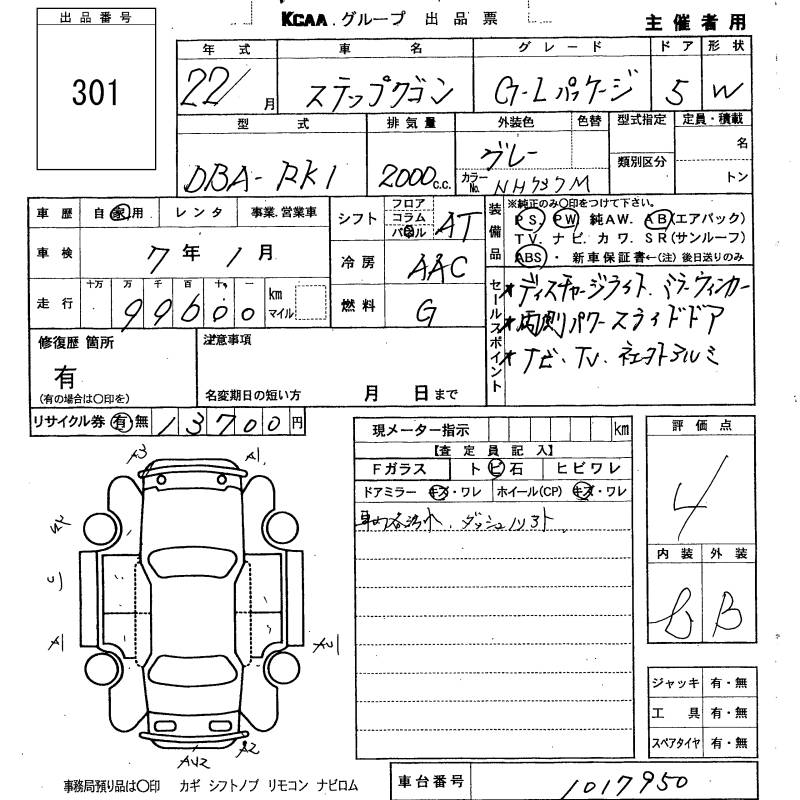 出品番号
301
KCAA.グループ 出品票
主催者用
年式 車名 グレード ドア 形状
22/ 月 ステップワゴン G-Lパッケージ 5 W
型式 排気量 外装色 色替 型式指定 定員・積載
DBA-RK1 2000 c.c. グレー 名
カラーNo. NH737M 類別区分 トン
車歴 自家用 レンタ 事業.営業車
車検 7年1月
走行 十万 万 千 百 十 一 km マイル
99600
シフト フロア コラム パネル AT
冷房 AAC
燃料 G
装備品 ※純正のみ〇印をつけて下さい。
PS. PW 純AW. AB(エアバック)
TV. ナビ. カワ. SR(サンルーフ)
ABS・新車保証書←(注)後日送りのみ
セールスポイント
*ディスチャージライト.ミラーウィンカー
*両側パワースライドドア
*ナビ・TV.社外アルミ
修復歴 箇所
有
(有の場合は〇印を)
注意事項
名変期日の短い方 月 日まで
リサイクル券 有 無 13700円
現メーター指示 km
【査定員記入】
Fガラス トビ石 ヒビワレ
ドアミラー キズ・ワレ ホイール(CP) キズ・ワレ
評価点
4
内装 外装
B
A3 A1
U
A1
AU1
AU2 A2
ジャッキ 有・無
工具 有・無
スペアタイヤ 有・無
事務局預り品は〇印 カギ シフトノブ リモコン ナビロム
車台番号 1017950